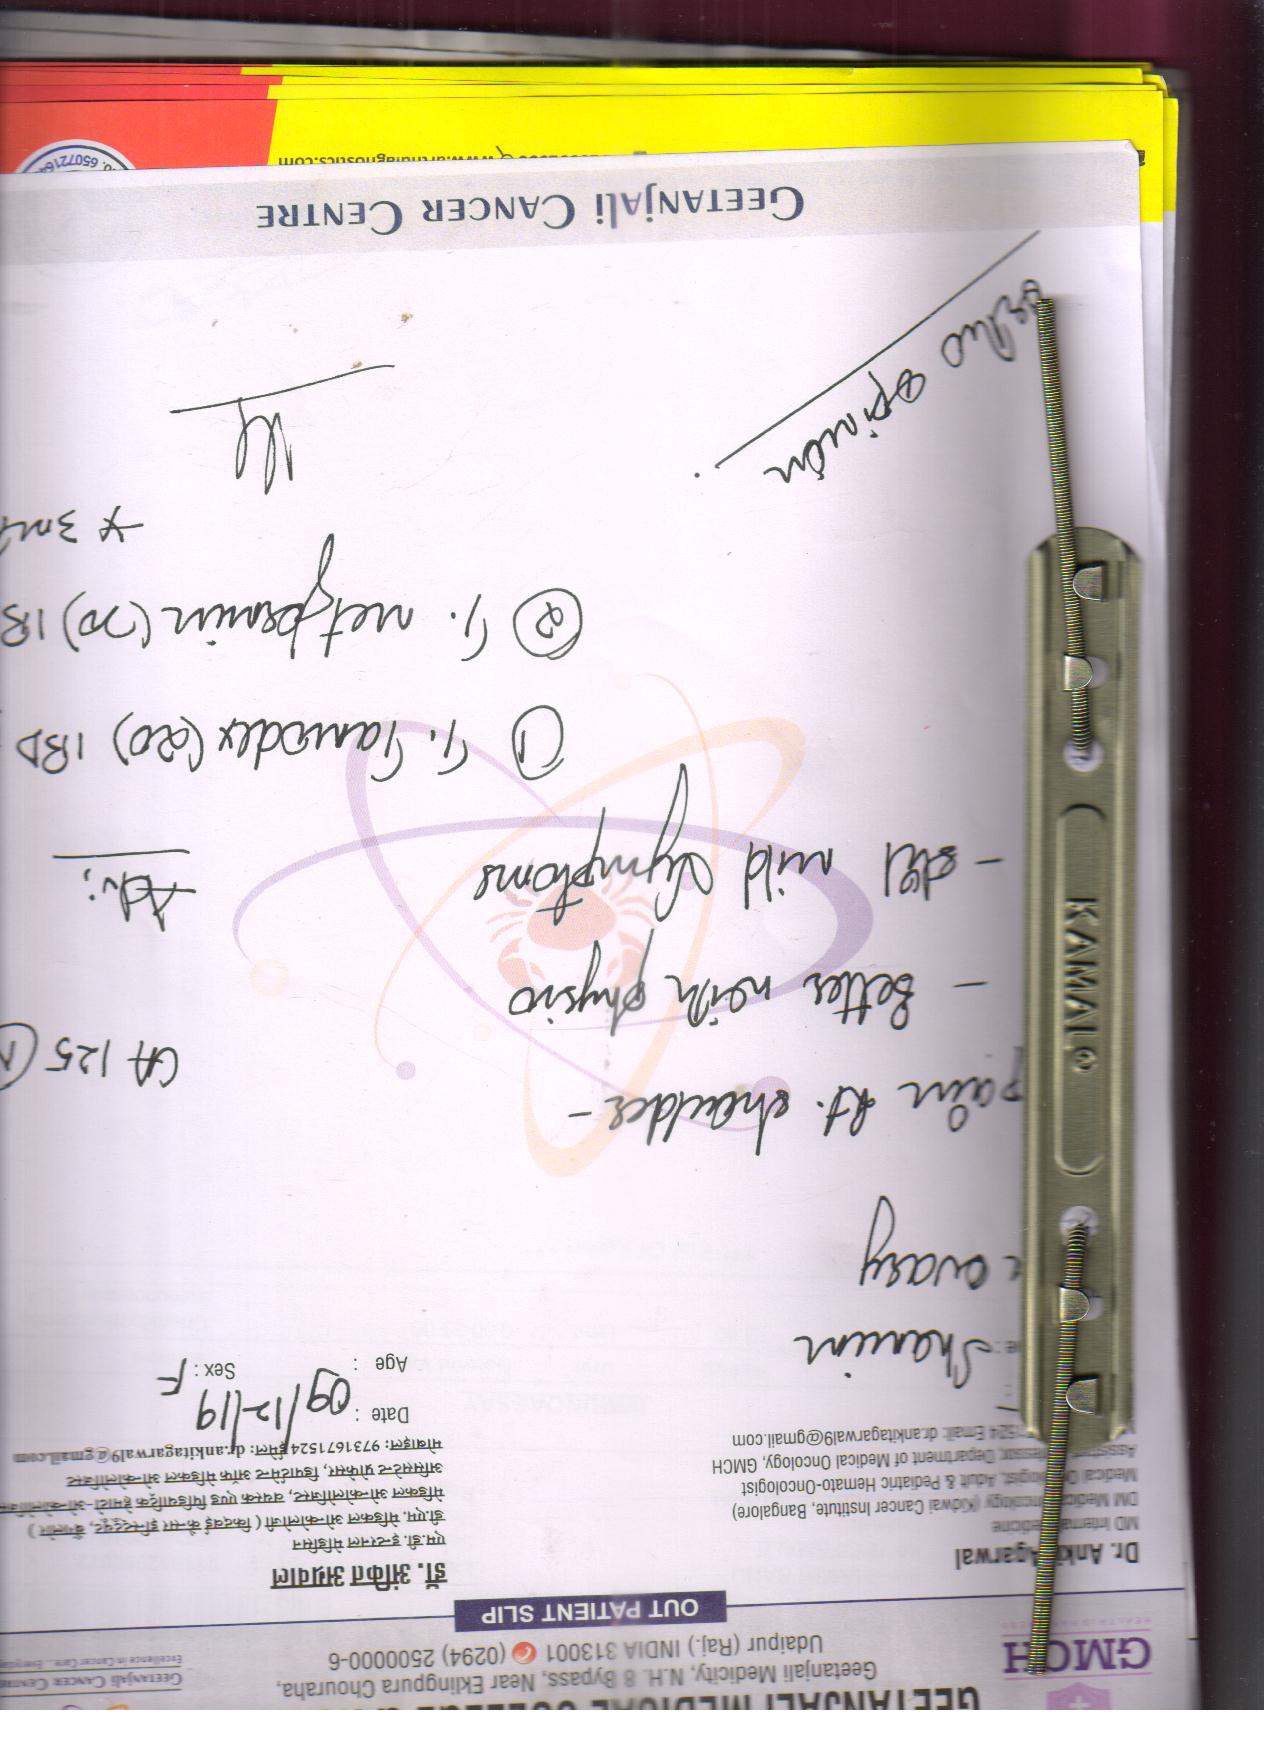 GEETANJALI MEDICAL COLLEGE &
Geetanjali Medicity, N.H. 8 Bypass, Near Eklingpura Chouraha,
Udaipur (Raj.) INDIA 313001 (0294) 2500000-6
GMCH
GEETANJALI CANCER CENTRE
Excellence in Cancer Care...
OUT PATIENT SLIP
Dr. Anki Agarwal
MD Internal Medicine
DM Medical Oncology (Kidwai Cancer Institute, Bangalore)
Medical Oncologist, Adult & Pediatric Hemato-Oncologist
Professor, Department of Medical Oncology, GMCH
1524 Email: dr.ankitagarwal9@gmail.com
डॉ. अंकित अग्रवाल
एम.डी. इन्टरनल मेडिसिन
डी.एम. मेडिकल ओन्कोलोजी (किदवई कैन्सर इन्स्टिट्यूट, बैंगलोर)
मेडिकल ओन्कोलोजिस्ट, वयस्क एण्ड पिडियाट्रिक हेमेटो-ओन्कोलोजिस्ट
असिस्टेन्ट प्रोफेसर, डिपार्टमेन्ट ऑफ मेडिकल ओन्कोलोजिस्ट
मोबाइल: 9731671524 ईमेल: dr.ankitagarwal9@gmail.com
Date : 09/12/19
Age : Sex : F
Shamim
ovary
pain Rt. shoulder -
CA 125 (N
- Better with physio
- still mild symptoms
Adv:
① T. Tamodex (20) 1BD
② T. metformin 1B
x 3m
ortho opinion
GEETANJALI CANCER CENTRE
KAMAL®
www.arthdiagnostics.com